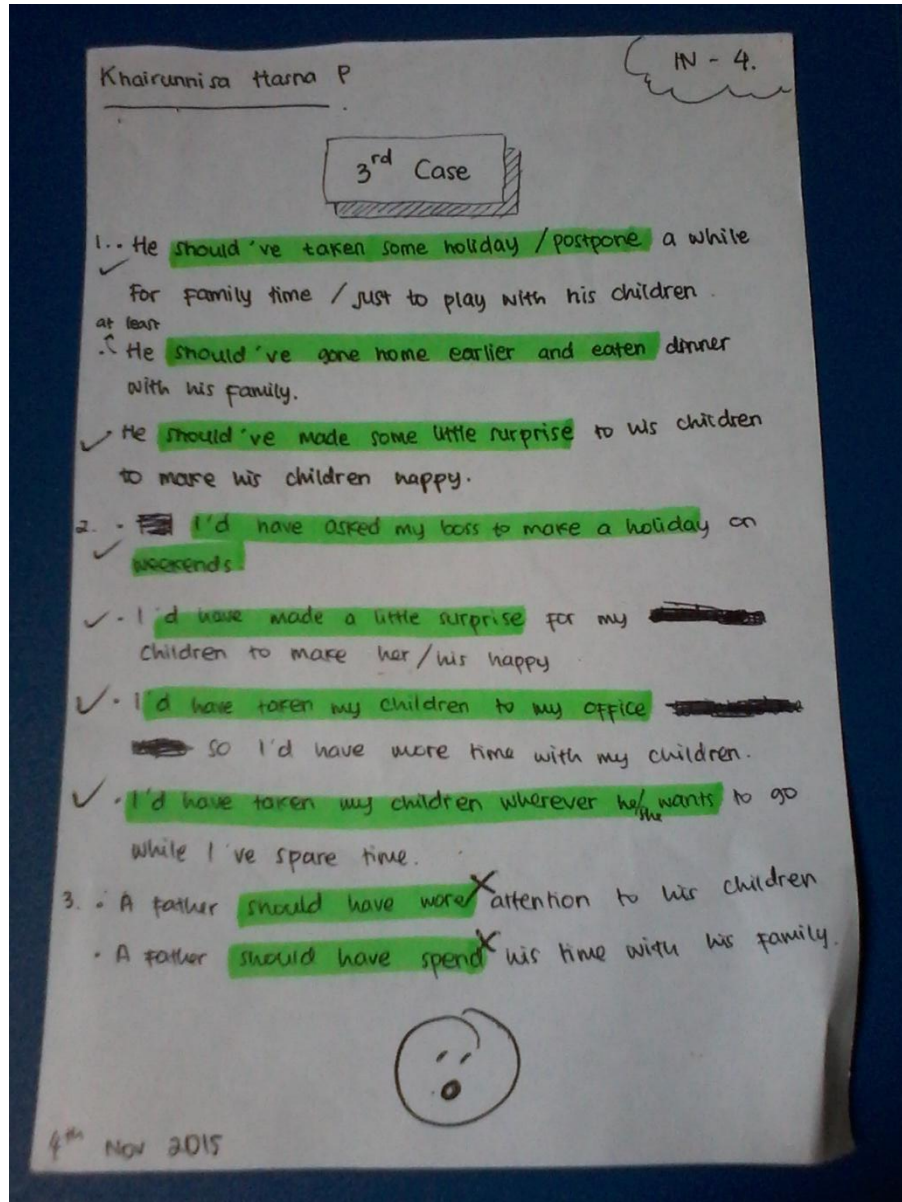 Khairunnisa Hasna P
IN - 4.
3rd Case
1. • He should've taken some holiday / postpone a while
for family time / just to play with his children.
at least
• He should've gone home earlier and eaten dinner
with his family.
• He should've made some little surprise to his children
to make his children happy.
2. • I'd have asked my boss to make a holiday on
weekends
• I'd have made a little surprise for my
children to make her/his happy
• I'd have taken my children to my office
so I'd have more time with my children.
• I'd have taken my children wherever he/she wants to go
while I've spare time.
3. • A father should have more attention to his children
• A father should have spend his time with his family.
4th Nov 2015